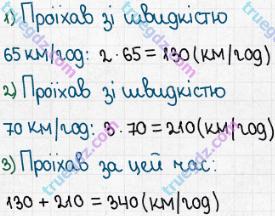 1) Проїхав зі швидкістю
65 км/год: 2 · 65 = 130 (км/год)
2) Проїхав зі швидкістю
70 км/год: 3 · 70 = 210 (км/год)
3) Проїхав за цей час:
130 + 210 = 340 (км/год)